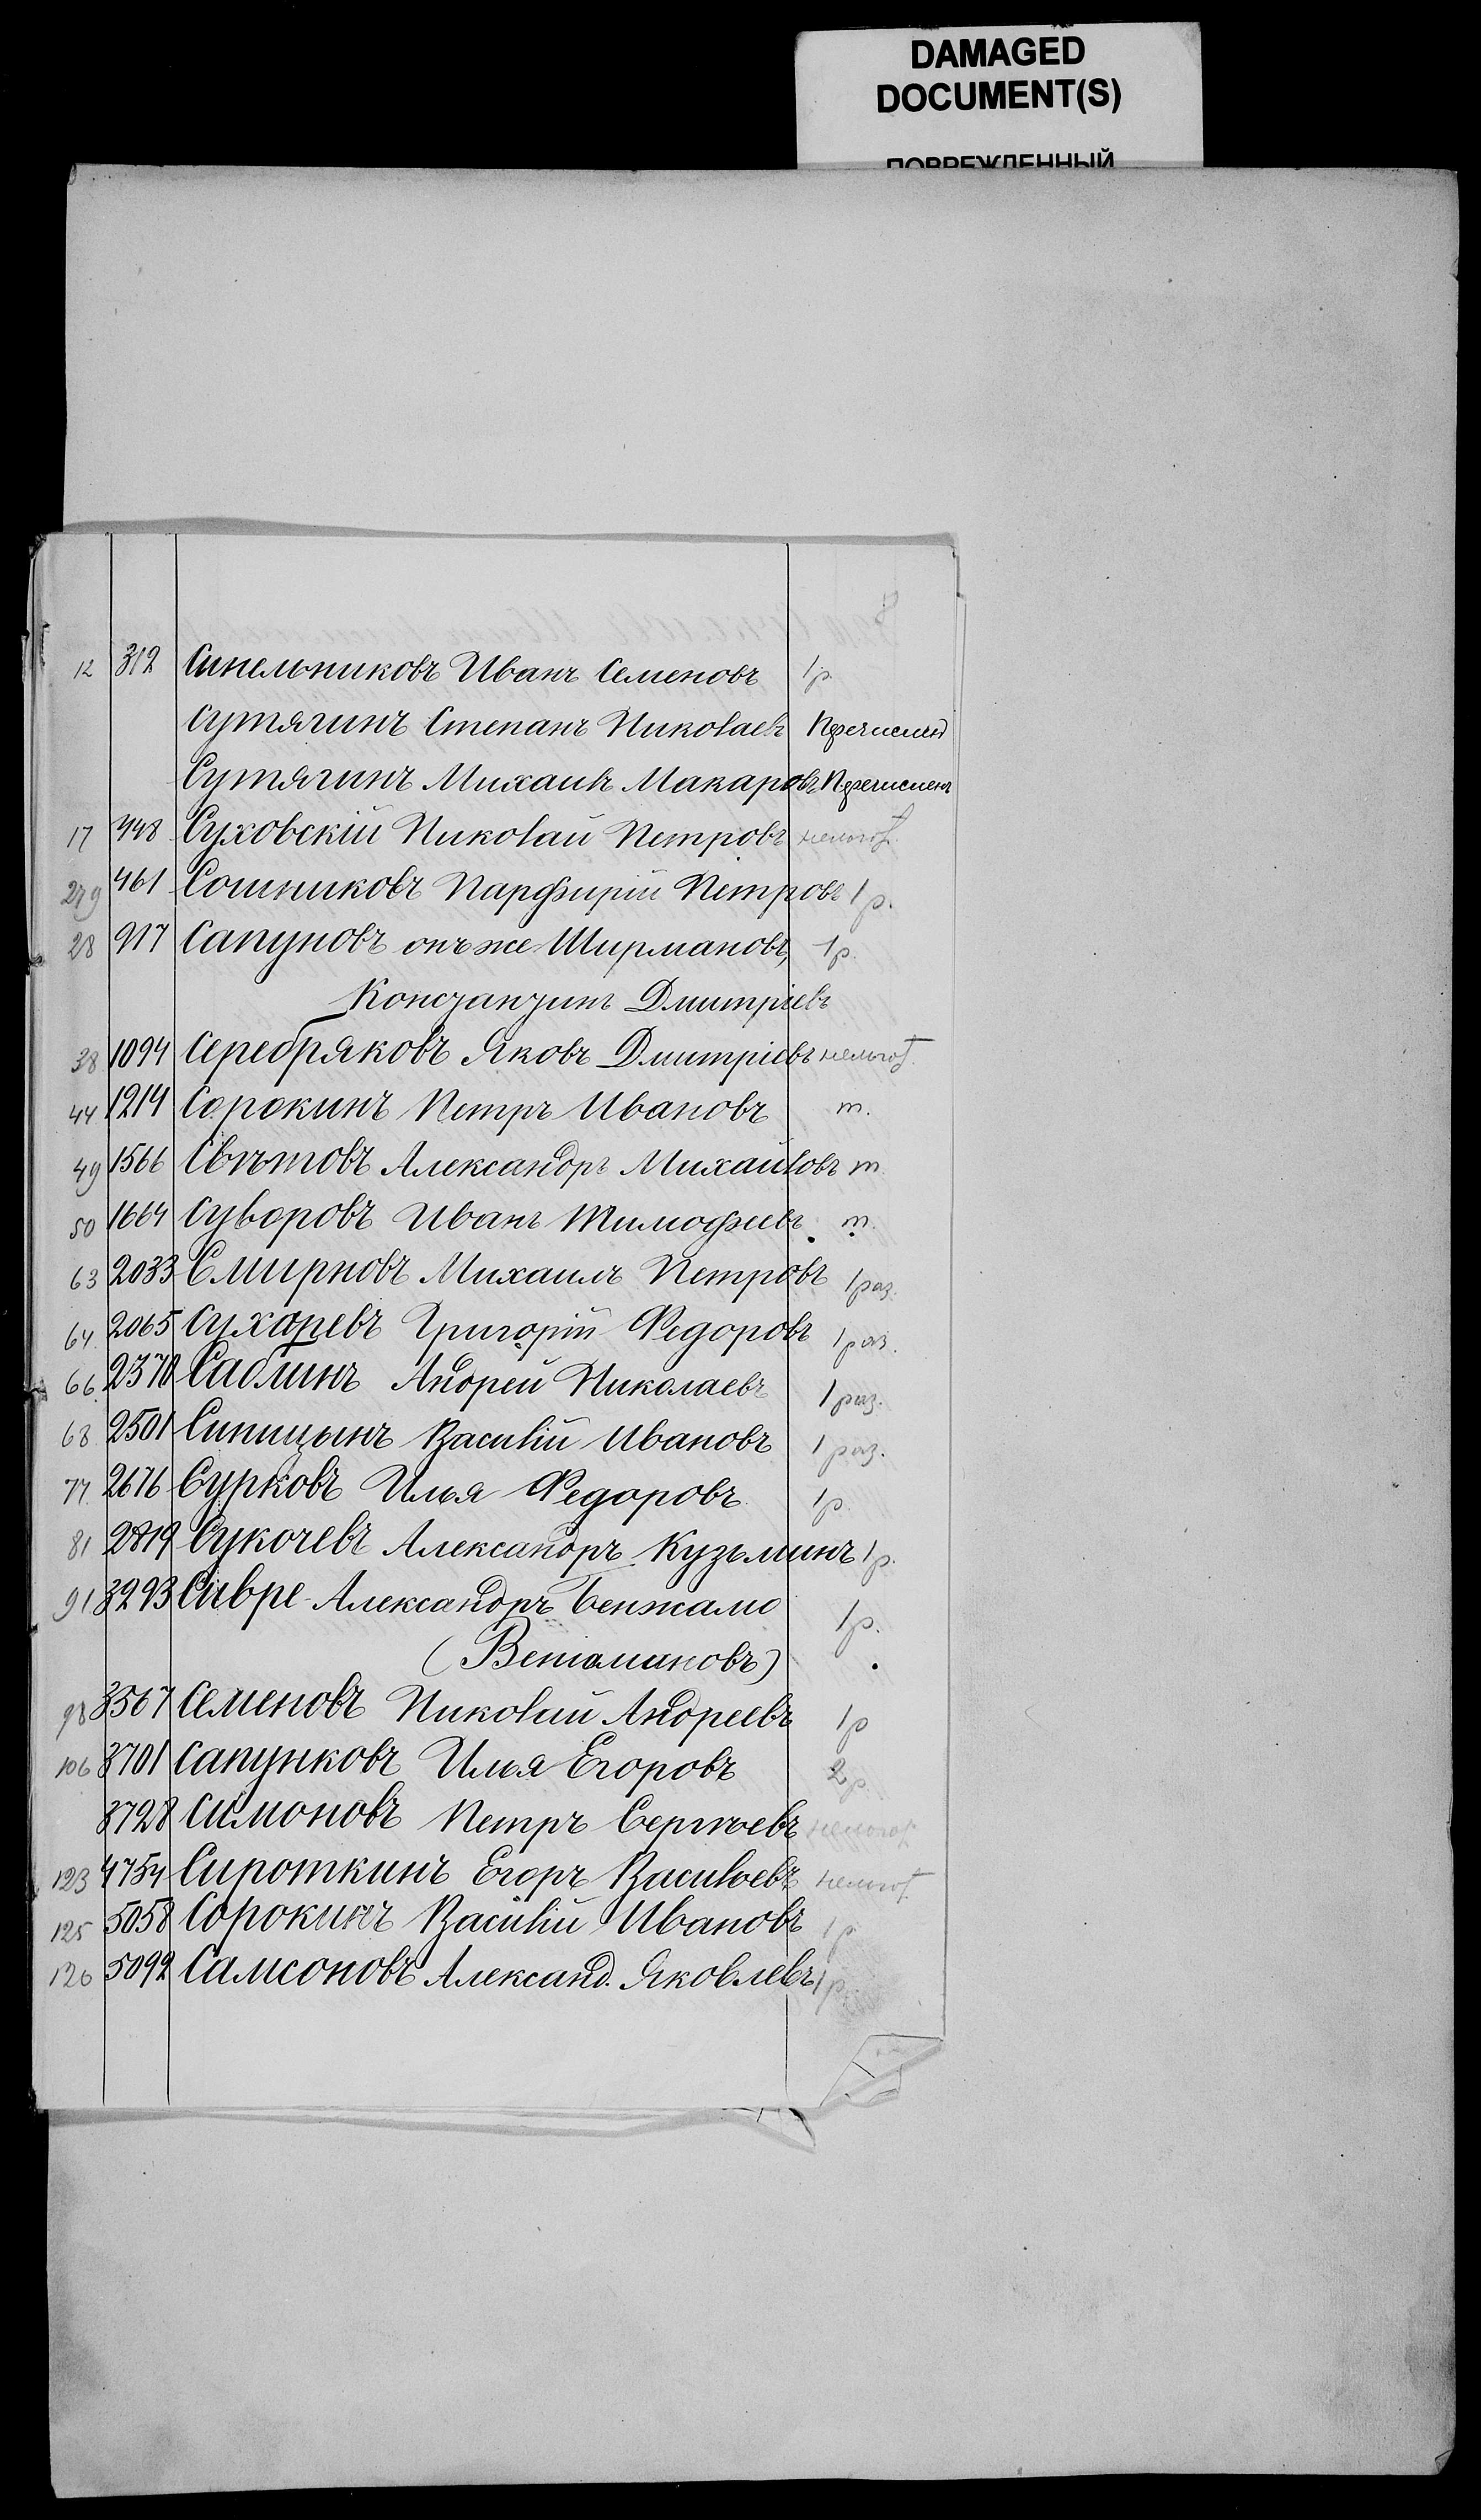 DAMAGED
DOCUMENT(S)
ПОВРЕЖДЕННЫЙ
12 312 Синельниковъ Иванъ Семеновъ 1р.
Сутягинъ Степанъ Николаевъ Перечислен
Сутягинъ Михаилъ Макаровъ Перечислен
17 448 Суховскій Николай Петровъ нельгот.
279 461 Сошниковъ Парфирій Петровъ 1р.
28 917 Сапуновъ онъ же Ширмановъ, 1р.
Константинъ Дмитріевъ
38 1094 Серебряковъ Яковъ Дмитріевъ нельгот.
44 1214 Сорокинъ Петръ Ивановъ т.
49 1566 Свѣтовъ Александръ Михайловъ т.
50 1664 Суворовъ Иванъ Тимофеевъ т.
63 2033 Смирновъ Михаилъ Петровъ 1 раз.
64 2065 Сухаревъ Григорій Федоровъ 1 раз.
66 2370 Саблинъ Андрей Николаевъ 1 раз.
68 2501 Синицынъ Василій Ивановъ 1 раз.
77 2676 Сурковъ Илья Федоровъ 1р.
81 2819 Сукочевъ Александръ Кузьминъ 1р.
91 3293 Сивре Александръ Бенжамо 1р.
(Веніаминовъ)
98 3567 Семеновъ Николай Андреевъ 1р
106 3701 Сапунковъ Илья Егоровъ 2р.
3728 Симоновъ Петръ Сергѣевъ нельгот.
123 4754 Сироткинъ Егоръ Васильевъ нельгот.
125 5058 Сорокинъ Василій Ивановъ 1р
126 5092 Самсоновъ Александ. Яковлевъ 1р.